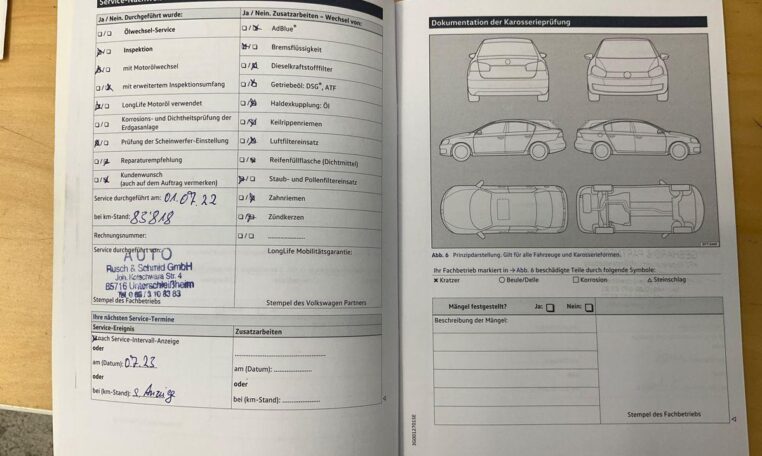 Service-Nachweis
Ja / Nein. Durchgeführt wurde:
Ölwechsel-Service
Inspektion
mit Motorölwechsel
mit erweitertem Inspektionsumfang
LongLife Motoröl verwendet
Korrosions- und Dichtheitsprüfung der
Erdgasanlage
Prüfung der Scheinwerfer-Einstellung
Reparaturempfehlung
Kundenwunsch
(auch auf dem Auftrag vermerken)
Service durchgeführt am: 01.07.22
bei km-Stand: 83'818
Rechnungsnummer:
Service durchgeführt von:
AUTO
Rusch & Schmid GmbH
Joh. Kotschwara Str. 4
85716 Unterschleißheim
Stempel des Fachbetriebs
Ja / Nein. Zusatzarbeiten – Wechsel von:
AdBlue®
Bremsflüssigkeit
Dieselkraftstofffilter
Getriebeöl: DSG®, ATF
Haldexkupplung: Öl
Keilrippenriemen
Luftfiltereinsatz
Reifenfüllflasche (Dichtmittel)
Staub- und Pollenfiltereinsatz
Zahnriemen
Zündkerzen
LongLife Mobilitätsgarantie:
Stempel des Volkswagen Partners
Ihre nächsten Service-Termine
Service-Ereignis
nach Service-Intervall-Anzeige
oder
am (Datum): 07.23
oder
bei (km-Stand): s. Anzeige
Zusatzarbeiten
am (Datum):
oder
bei (km-Stand):
Dokumentation der Karosserieprüfung
Abb. 6 Prinzipdarstellung. Gilt für alle Fahrzeuge und Karosserieformen.
Ihr Fachbetrieb markiert in → Abb. 6 beschädigte Teile durch folgende Symbole:
✖ Kratzer ○ Beule/Delle □ Korrosion △ Steinschlag
Mängel festgestellt? Ja: Nein:
Beschreibung der Mängel:
Stempel des Fachbetriebs